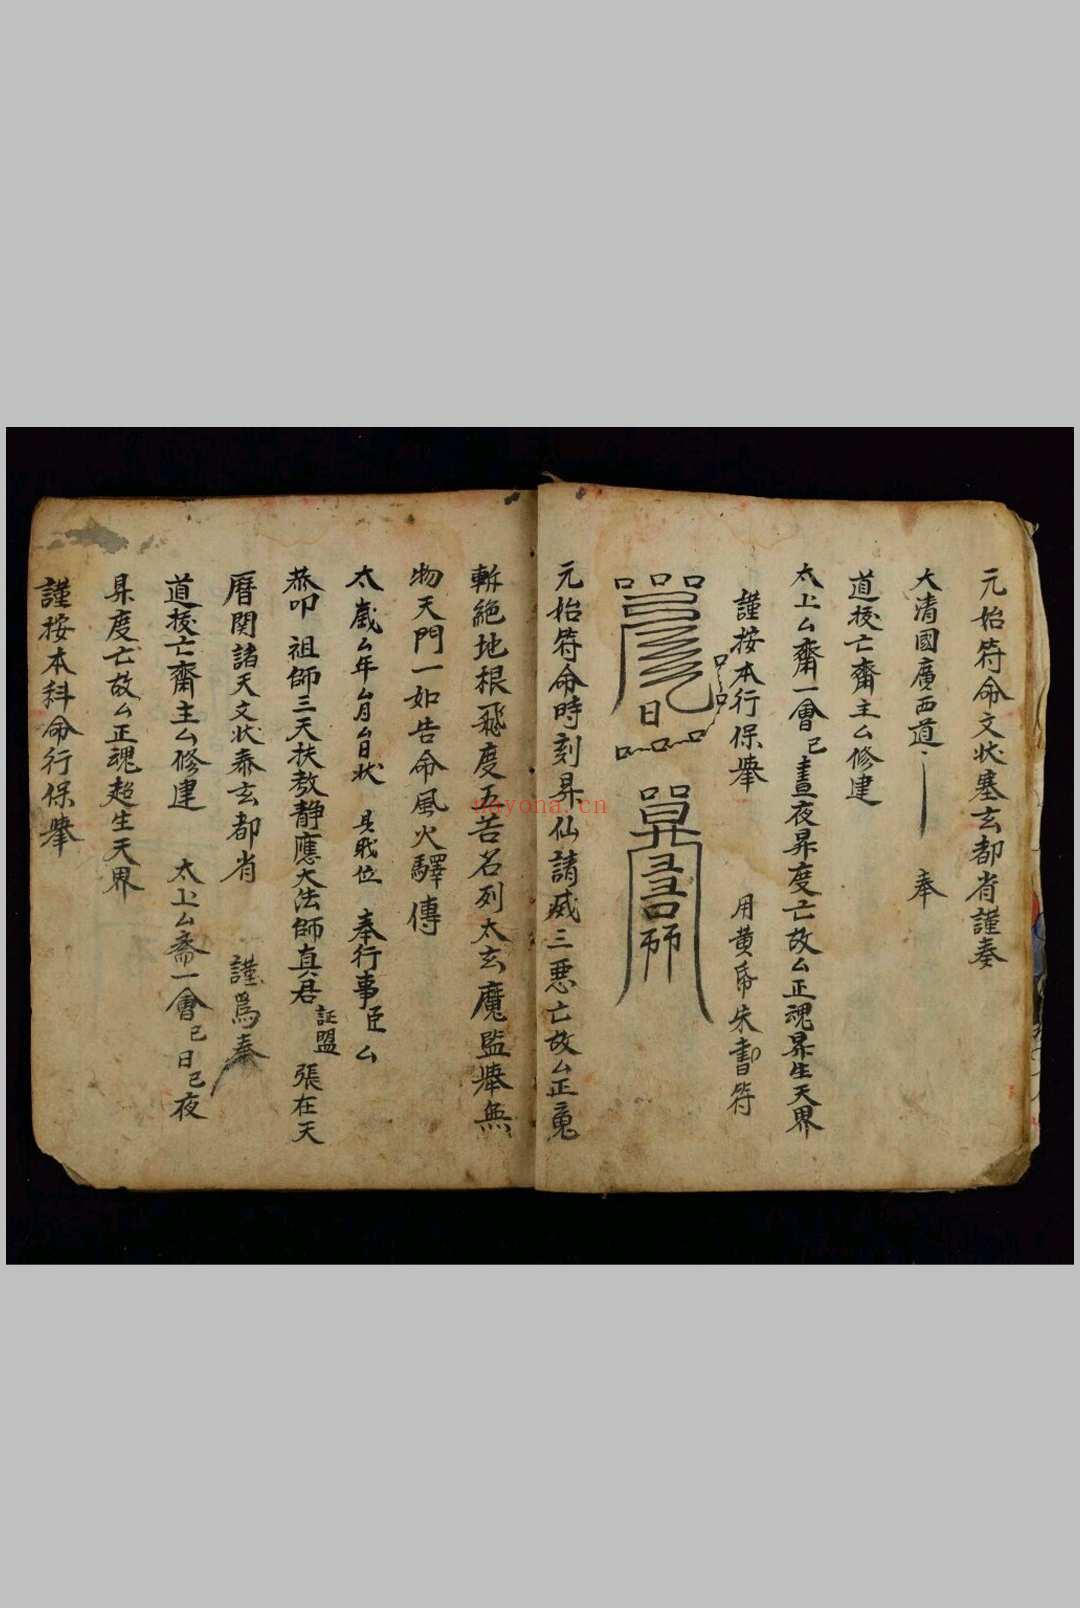 元始符命文状塞玄都省謹奏
大清國廣西道 奉
道拔亡齋主厶修建
太上厶齋一會已晝夜昇度亡故厶正魂昇生天界
謹按本行保舉 用黄帋朱書符
日
元始符命時刻昇仙請威三悪亡故厶正䰟
斬絕地根飛度五苦名列太玄魔監舉無
物天門一如告命風火驛傳
太歲厶年厶月厶日状 具戝位 奉行事臣厶
恭叩 祖師三天扶教靜應大法師真君証盟 張在天
曆関諸天文状泰玄都省 謹爲奏
道拔亡齋主厶修建 太上厶斋一會已日已夜
昇度亡故厶正魂超生天界
謹按本科命行保舉
nayona.cn